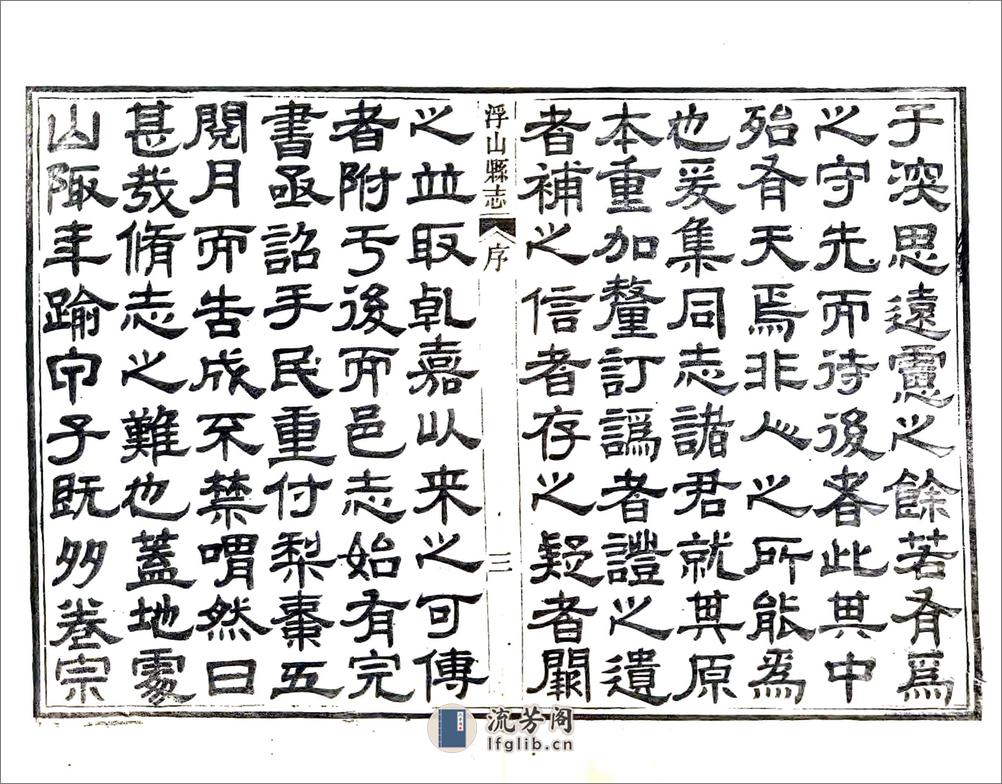 于深思遠慮之餘若有爲
之守先而待後者此其中
殆有天焉非人之所能爲
也爰集同志諸君就其原
本重加釐訂譌者證之遺
者補之信者存之疑者闕
浮山縣志 序 三
之並取乹嘉以来之可傳
者附于後而邑志始有完
書亟詔手民重付梨棗五
閱月而告成不禁喟然曰
甚哉脩志之難也蓋地處
山陬年踰甲子既尠卷宗
流芳阁
lfglib.cn